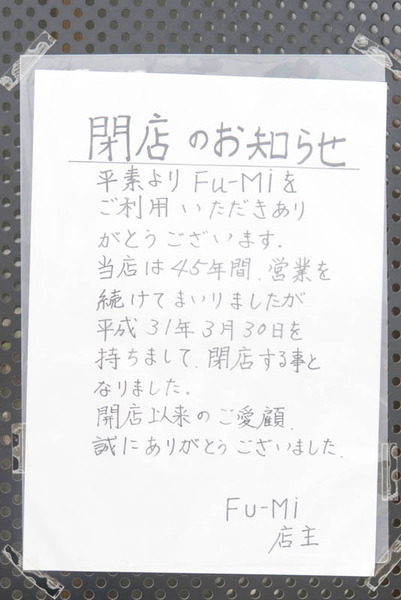 閉店のお知らせ
平素より Fu-Miを
ご利用いただきあり
がとうございます。
当店は45年間、営業を
続けてまいりましたが
平成31年3月30日を
持ちまして、閉店する事と
なりました。
開店以来のご愛顧、
誠にありがとうございました。
Fu-Mi
店主